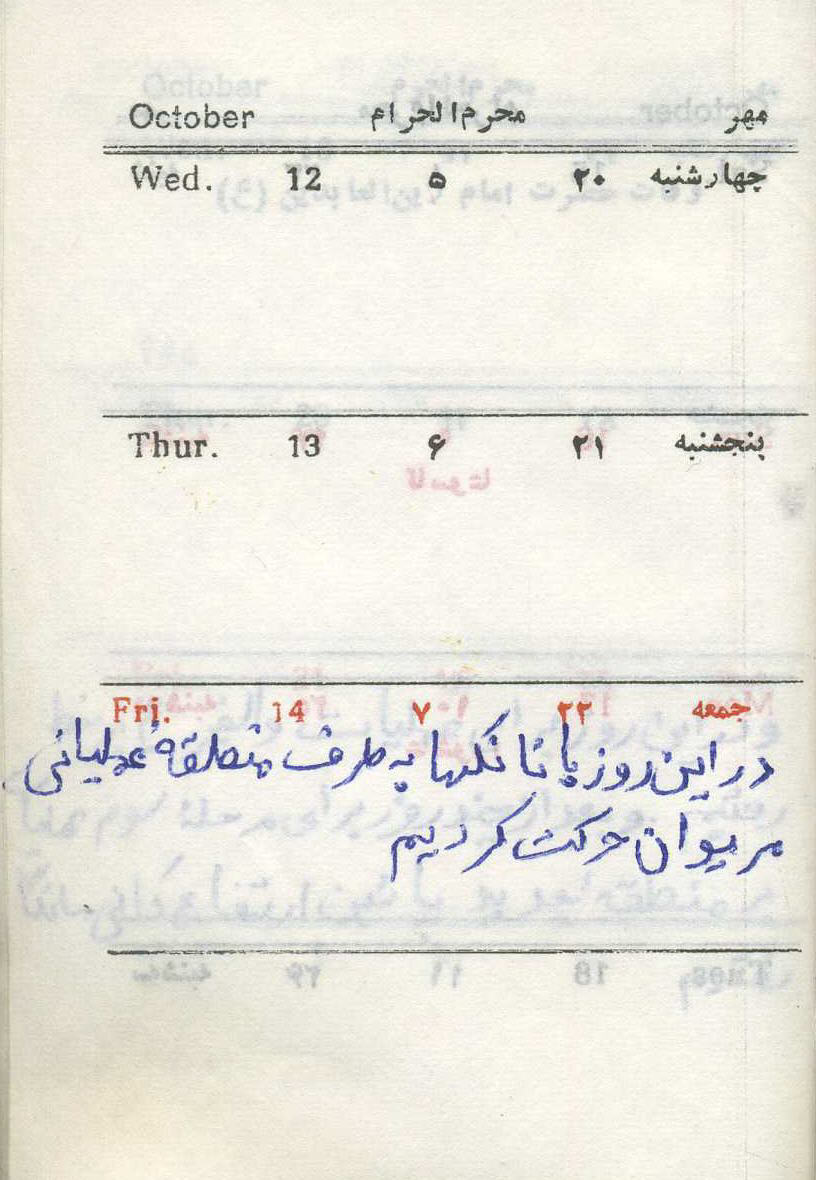 مهر محرم‌الحرام October
چهارشنبه ۲۰ ۵ 12 Wed.
پنجشنبه ۲۱ ۶ 13 Thur.
جمعه ۲۲ ۷ 14 Fri.
در این روز با تانکها به طرف منطقهٔ عملیاتی
مریوان حرکت کردیم